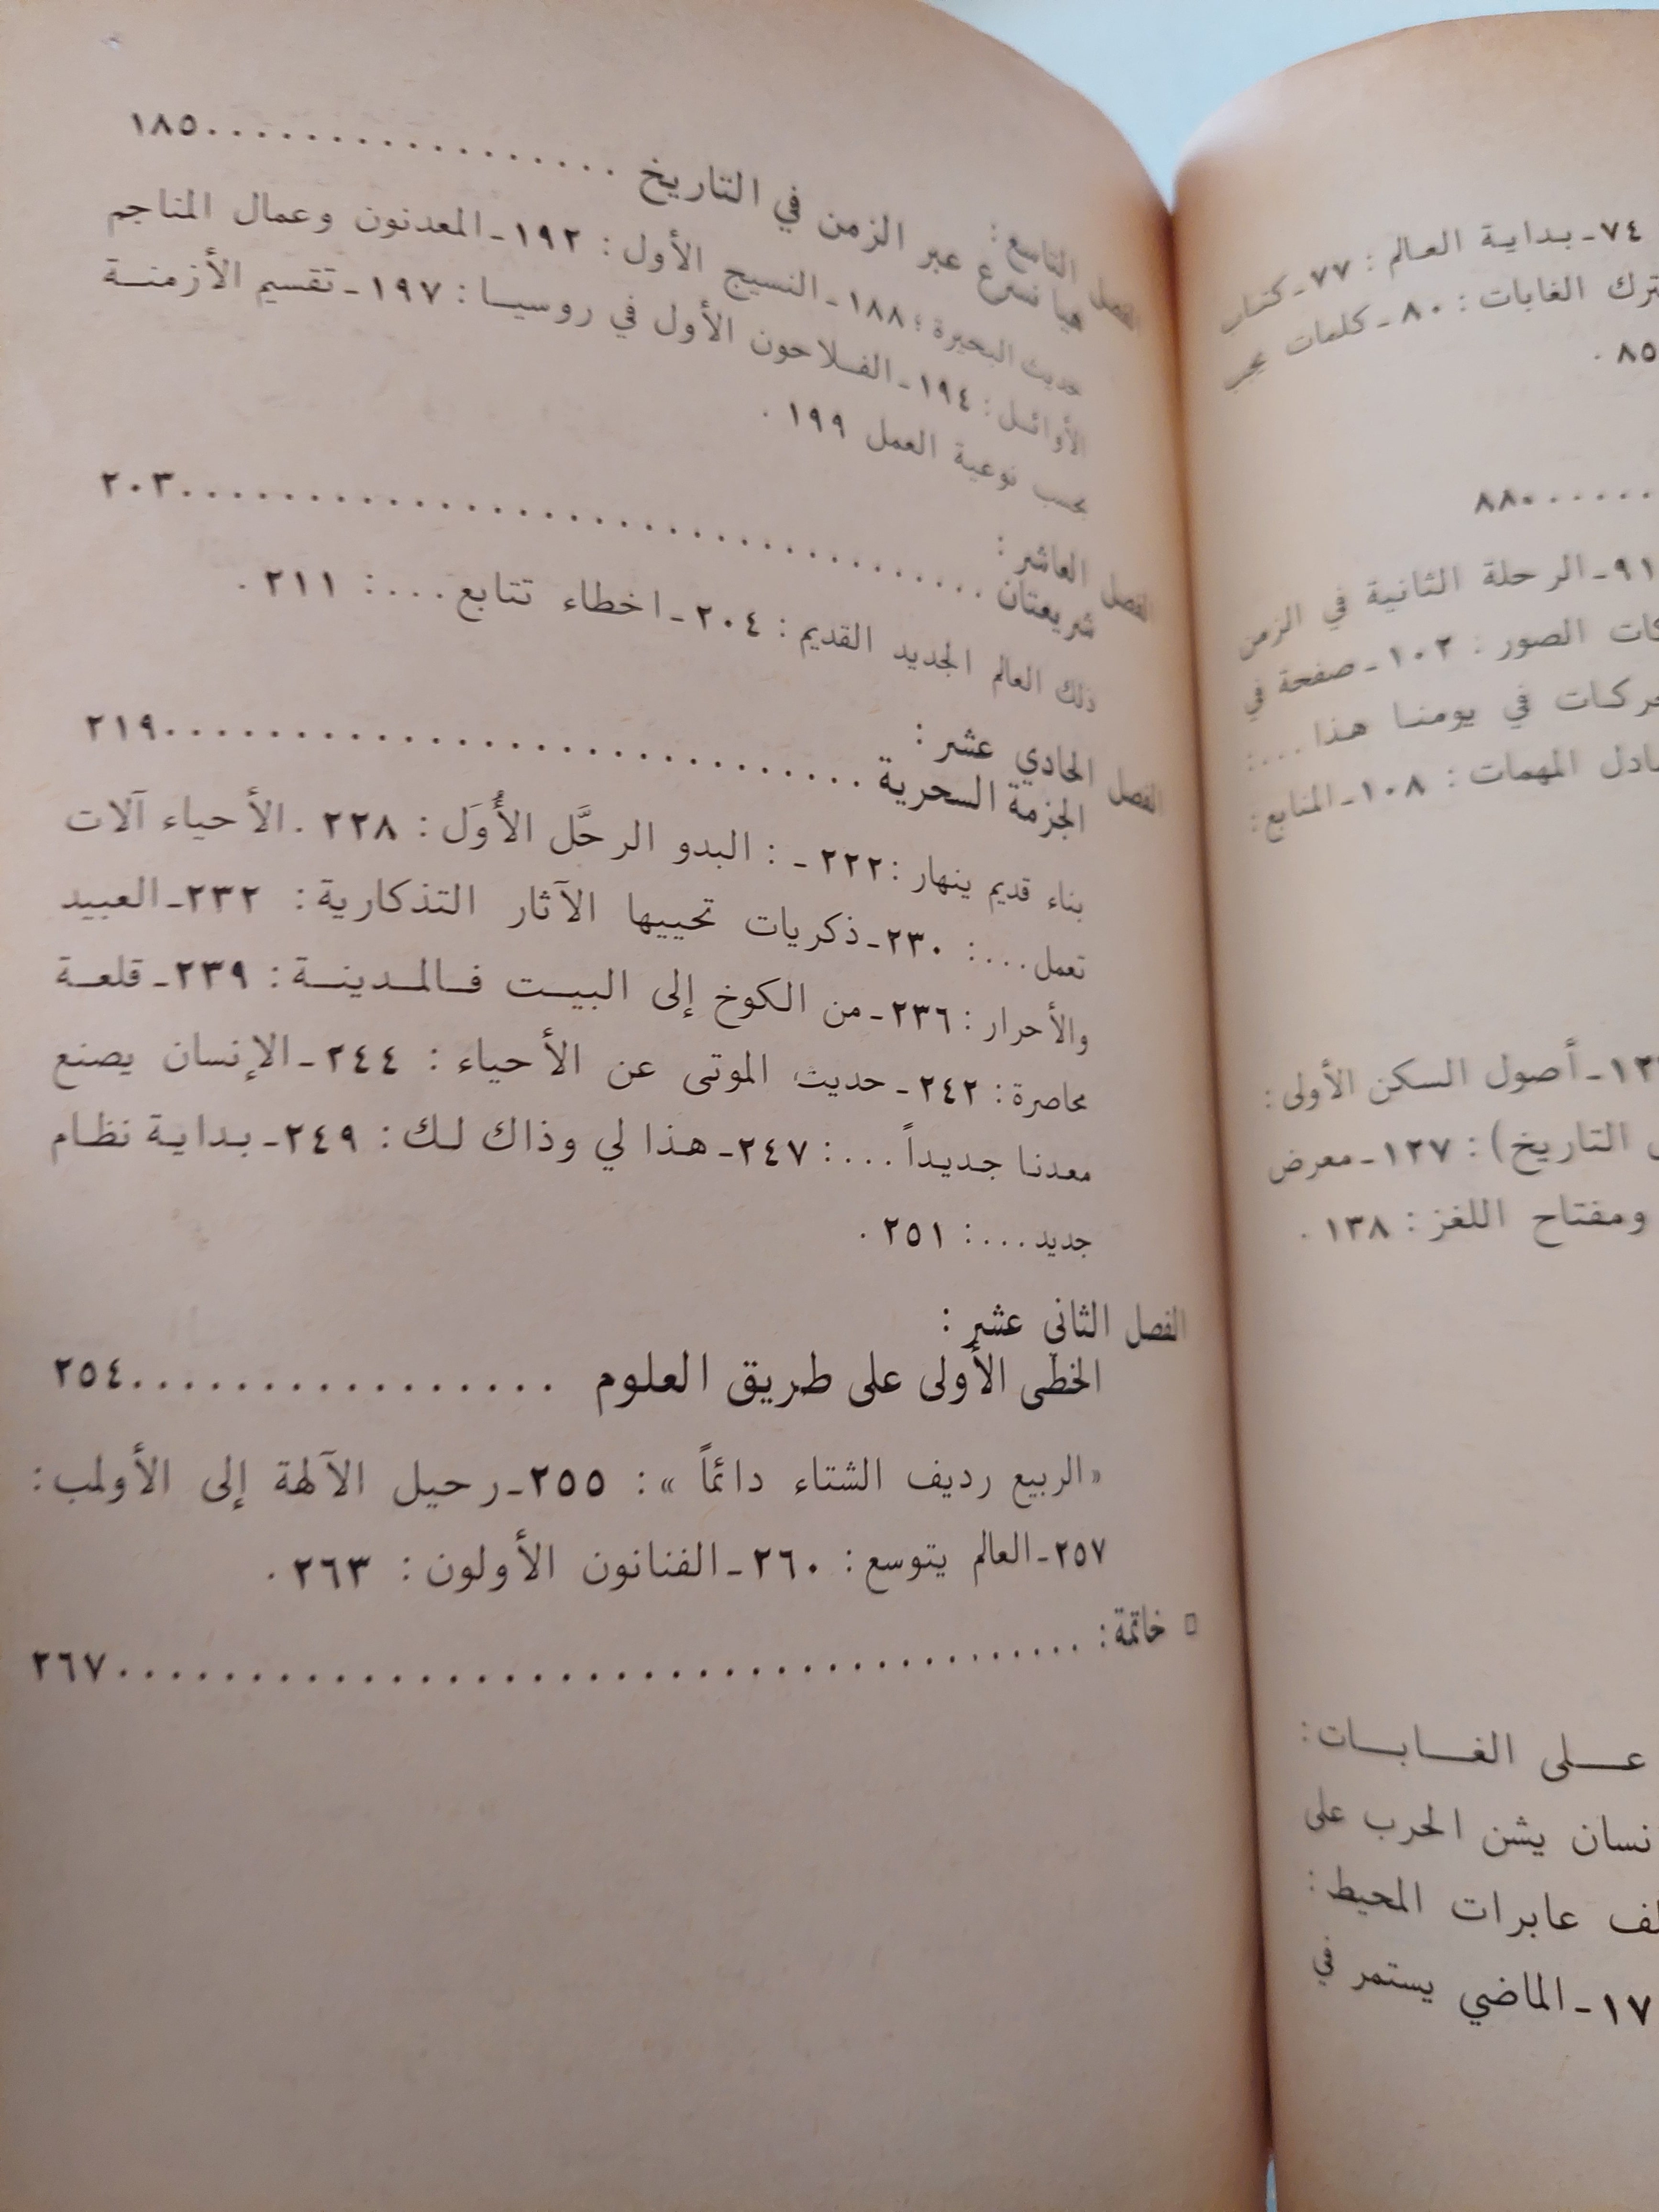 ٧٤ ـ بداية العالم : ٧٧ ـ كتاب
ترك الغابات : ٨٠ ـ كلمات يجب
٨٥ .
٨٨٠......
٩١ ـ الرحلة الثانية في الزمن
الصور : ١٠٢ ـ صفحة في
في يومنا هذا ... :
المهمات : ١٠٨ ـ المنابع :
ـ أصول السكن الأولى :
التاريخ) : ١٢٧ ـ معرض
ومفتاح اللغز : ١٣٨ .
على الغابات :
يشن الحرب على
عابرات المحيط :
ـ الماضي يستمر في
الفصل التاسع :
هيا نسرع عبر الزمن في التاريخ .................. ١٨٥
حديث البحيرة : ١٨٨ ـ النسيج الأول : ١٩٢ ـ المعدنون وعمال المناجم
الأوائل : ١٩٤ ـ الفلاحون الأول في روسيا : ١٩٧ ـ تقسيم الأزمنة
بحسب نوعية العمل ١٩٩ .
الفصل العاشر :
شريعتان .............................. ٢٠٣
ذلك العالم الجديد القديم : ٢٠٤ ـ اخطاء تتابع ... : ٢١١ .
الفصل الحادي عشر :
الجزمة السحرية ........................... ٢١٩
بناء قديم ينهار : ٢٢٢ ـ : البدو الرحَّل الأُوَل : ٢٢٨ . الأحياء آلات
تعمل ... : ٢٣٠ ـ ذكريات تحييها الآثار التذكارية : ٢٣٢ ـ العبيد
والأحرار : ٢٣٦ ـ من الكوخ إلى البيت فالمدينة : ٢٣٩ ـ قلعة
محاصرة : ٢٤٢ ـ حديث الموتى عن الأحياء : ٢٤٤ ـ الإنسان يصنع
معدنا جديداً ... : ٢٤٧ ـ هذا لي وذاك لك : ٢٤٩ ـ بداية نظام
جديد ... : ٢٥١ .
الفصل الثاني عشر :
الخطى الأولى على طريق العلوم ................. ٢٥٤
« الربيع رديف الشتاء دائماً » : ٢٥٥ ـ رحيل الآلهة إلى الأولمب :
٢٥٧ ـ العالم يتوسع : ٢٦٠ ـ الفنانون الأولون : ٢٦٣ .
□ خاتمة : .................................... ٢٦٧